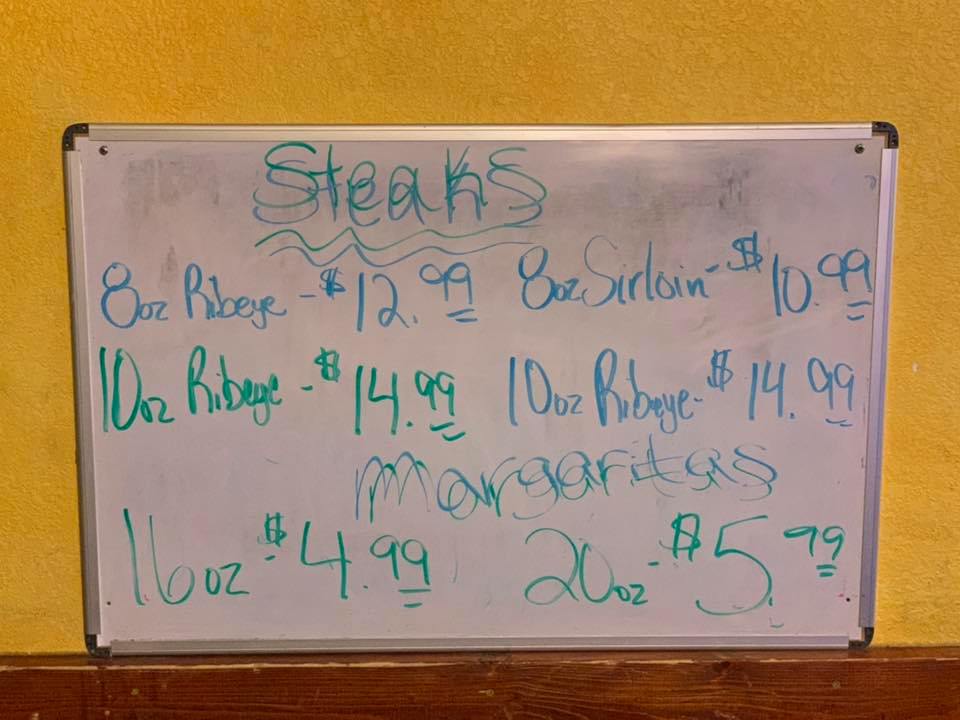 Steaks
8oz Ribeye - $12.99 8oz Sirloin - $10.99
10oz Ribeye - $14.99 10oz Ribeye - $14.99
Margaritas
16oz $4.99 20oz - $5.99